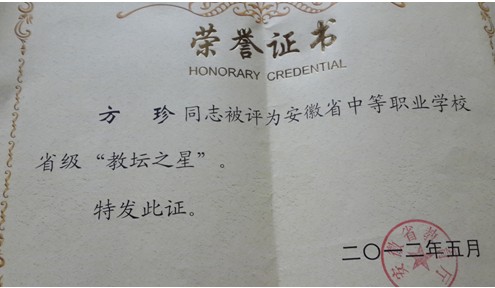 荣誉证书
HONORARY CREDENTIAL
方 珍 同志被评为安徽省中等职业学校
省级“教坛之星”。
特发此证。
二〇一二年五月
安徽省教育厅